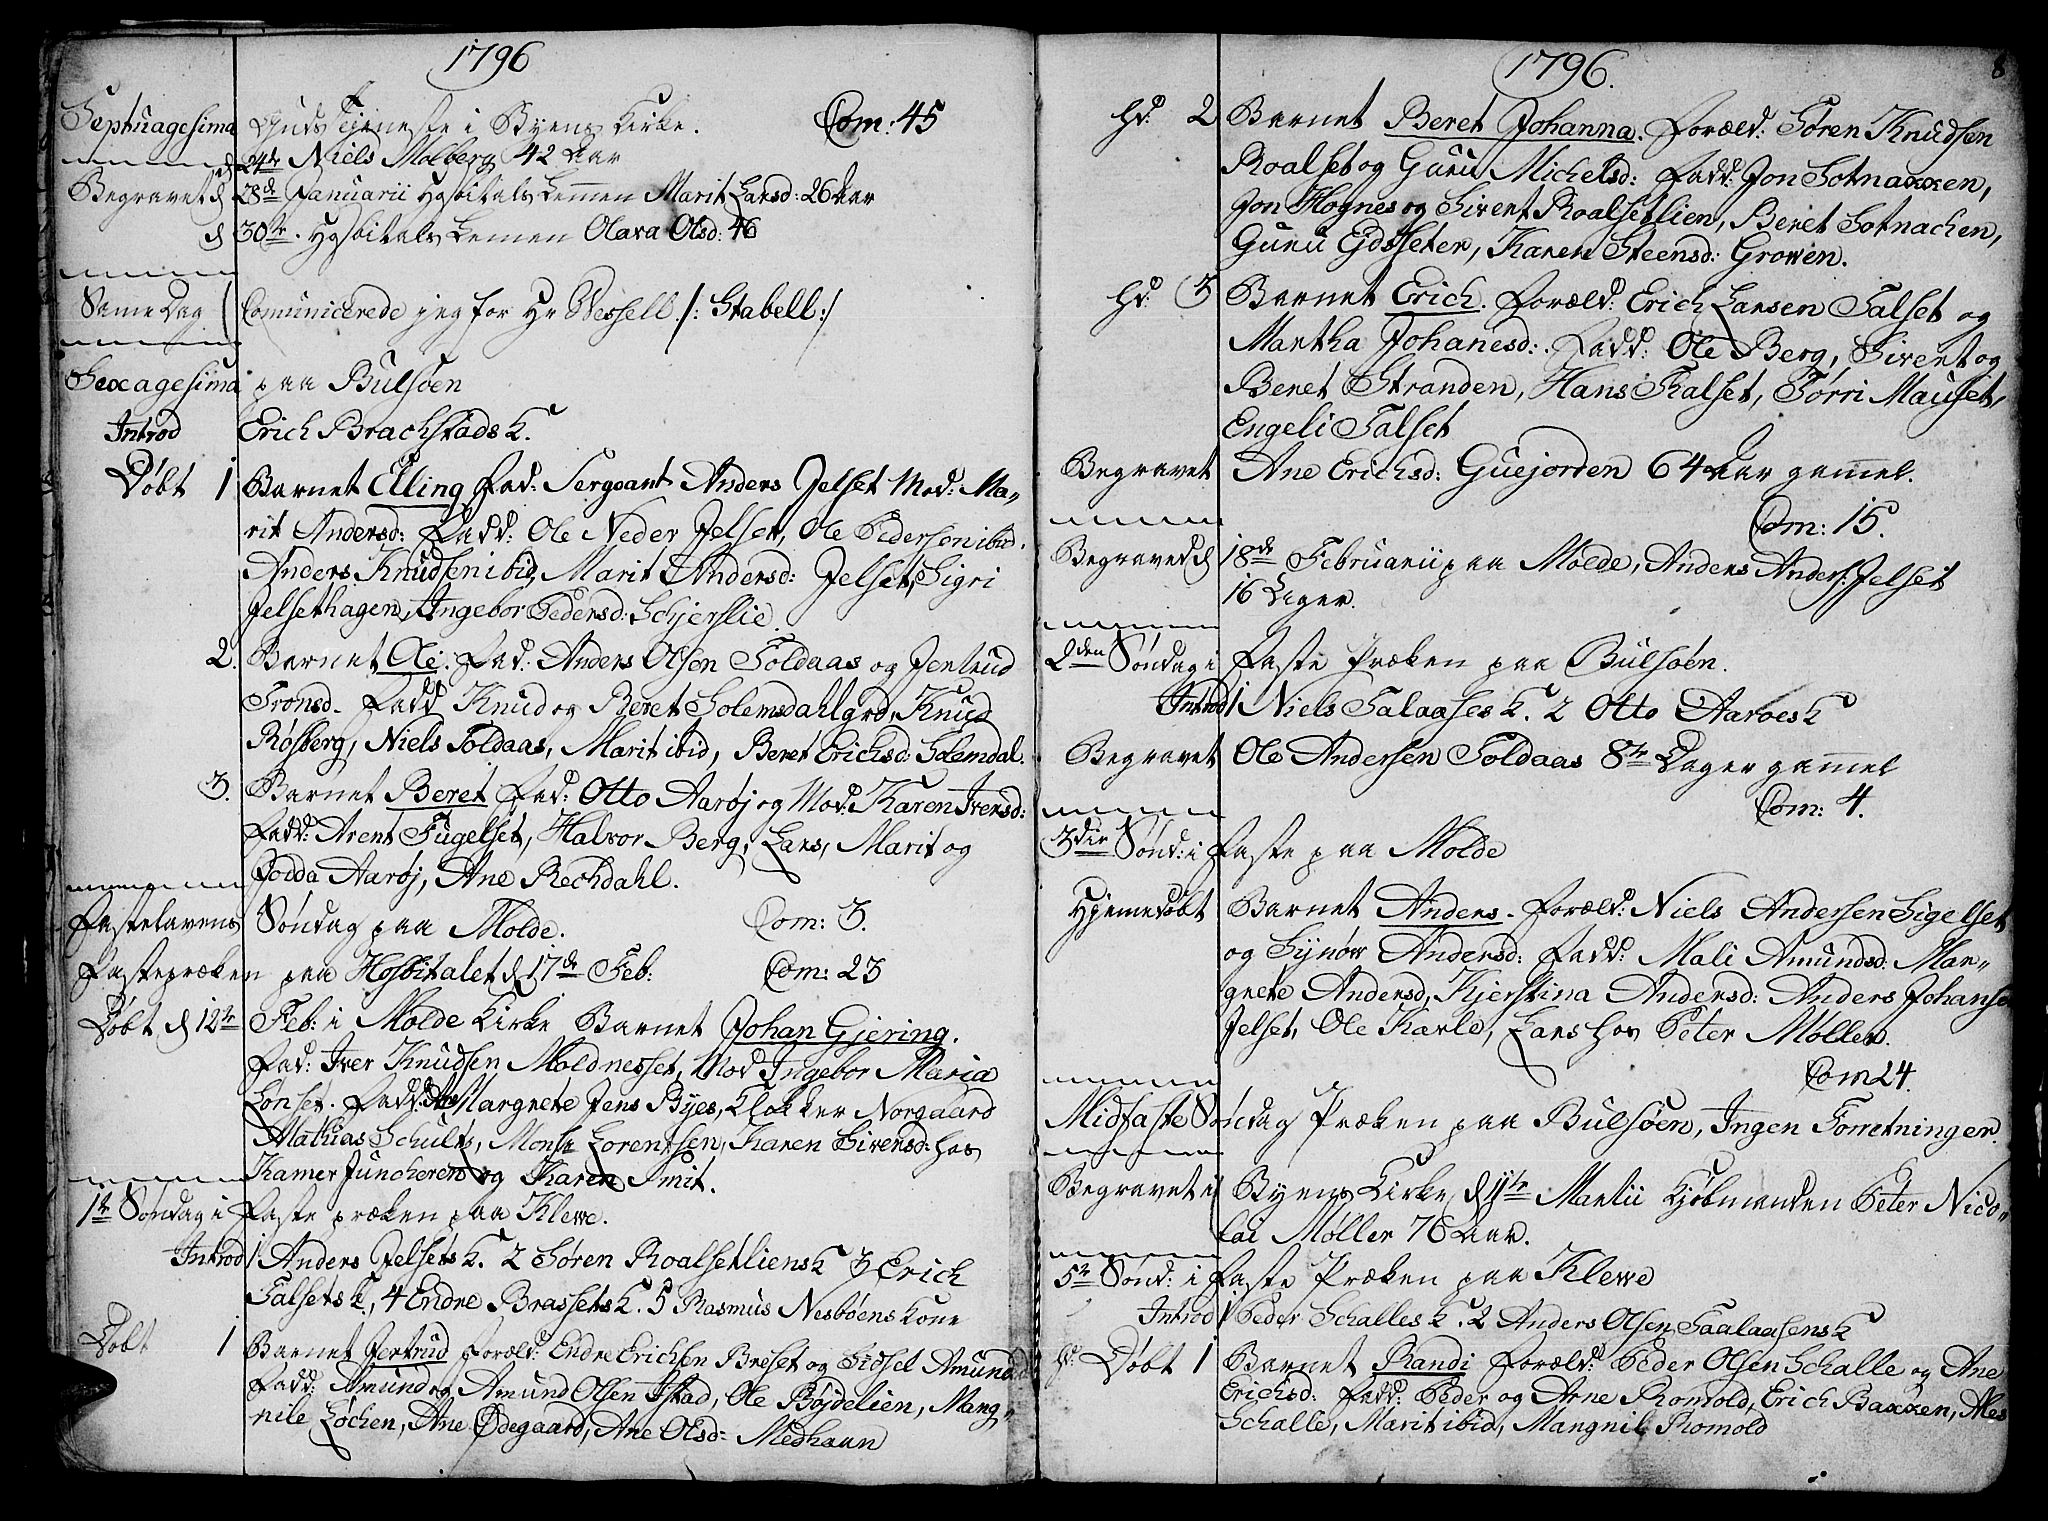 1796
Septuagesima Guds Tjeneste i Byens Kirke. Com: 45
d 24de Niels Molberg 42 Aar
Begravet d 28de Januarii Hospitals Lemmen Marit Larsd: 26 Aar
d 30te. Hospitals Lemen Olava Olsd: 46
Same Dag Comunicerede jeg for Hr Wessell /: Stabell :/
Sexagesima paa Bulsøen
Introd Erich Brachstads K.
Døbt 1 Barnet Elling Fad: Sergeant Anders Jelset Mod: Ma-
rit Andersd: Fadd: Ole Neder Jelset, Ole Pedersen ibid.
Anders Knudsen ibid, Marit Andersd: Jelset, Sigri
Jelsethagen, Ingebor Pedersd: Schjerslie.
2. Barnet Ole. Fad: Anders Olsen Toldaas og Jertrud
Tronsd. Fadd Knud og Beret Solemsdahlgrd, Knud
Røsberg, Niels Toldaas, Marit ibid, Beret Erichsd: Solemdal.
3. Barnet Beret Fad: Otto Aarøj og Mod: Karen Iversd:
Fadd: Arent Fugelset, Halvor Berg, Lars, Marit og
Jodda Aarøj, Ane Rechdahl.
Fastelavens Søndag paa Molde. Com: 3.
Fastepræken paa Hosbitalet d 17de Feb: Com: 23
Døbt d 12te Feb: i Molde Kirke Barnet Johan Gjering.
Fad: Iver Knudsen Moldnesset, Mod Ingebor Maria
Sønset. Fadd: Margrete Jens Byes, Klokker Norgaard
Mathias Schult, Monse Lorentsen, Karen Siversd: hos
Kamer Junckeren og Karen Smit.
1te Søndag i Faste præken paa Klewe.
Introd 1 Anders Jelsets K. 2 Søren Roalsetliens K 3 Erich
Talsets K, 4 Endre Brassets K. 5 Rasmus Nesbøens Kone
Døbt 1 Barnet Jertrud Foræld: Endre Erichsen Breset og Sidsel Amundsd
Fadd: Amund og Amund Olsen Istad, Ole Bøjdelien, Mang-
nile Løchen, Ane Ødegaard, Ane Olsd: Medhaun
1796. 8
Hd: 2 Barnet Beret Johanna. Foræld: Søren Knudsen
Roalset og Guru Michelsd: Fadd: Jon Sotnakken,
Jon Hognes og Sivert Roalsetlien, Beret Sotnachen,
Guru Ejdsseter, Karen Steensd: Growen.
Hd: 3 Barnet Erich. Foræld: Erich Larsen Talset og
Martha Johanesd: Fadd: Ole Berg, Sivert og
Beret Stranden, Hans Talset, Tørri Mauset,
Engeli Talset
Begravet Ane Erichsd: Guejorden 64 Aar gammel.
Com: 15.
Begravet d 18de Februarii paa Molde, Anders Anders: Jelset
16 Dager.
2den Søndag i Faste Præken paa Bulsøen.
Introd 1 Niels Talaases K. 2 Otto Aarøes K
Begravet Ole Andersen Toldaas 8te Dager gammel
Com: 4.
3die Sønd: i Faste paa Molde
Hjemedøbt Barnet Anders. Foræld: Niels Andersen Sigelset
og Synøv Andersd: Fadd: Mali Amundsd: Mar-
grete Andersd, Kjerstina Andersd: Anders Johanse
Jelset, Ole Karle, Lars hos Peter Møller.
Com 24.
Midfaste Søndag Præken paa Bulsøen, Ingen Forretninger.
Begravet i Byens Kirke d 11te Martii Kjøbmanden Peter Nico-
lai Møller 76 Aar.
5te Sønd: i Faste Præken paa Klewe
Introd 1 Peder Schalles K. 2 Anders Olsen Taalaasens K
Hd: Døbt 1 Barnet Randi Foræld: Peder Olsen Schalle og Ane
Erichsd: Fadd: Peder og Arne Romold, Erich Bakken,
Schalle, Marit ibid, Mangnil Romold